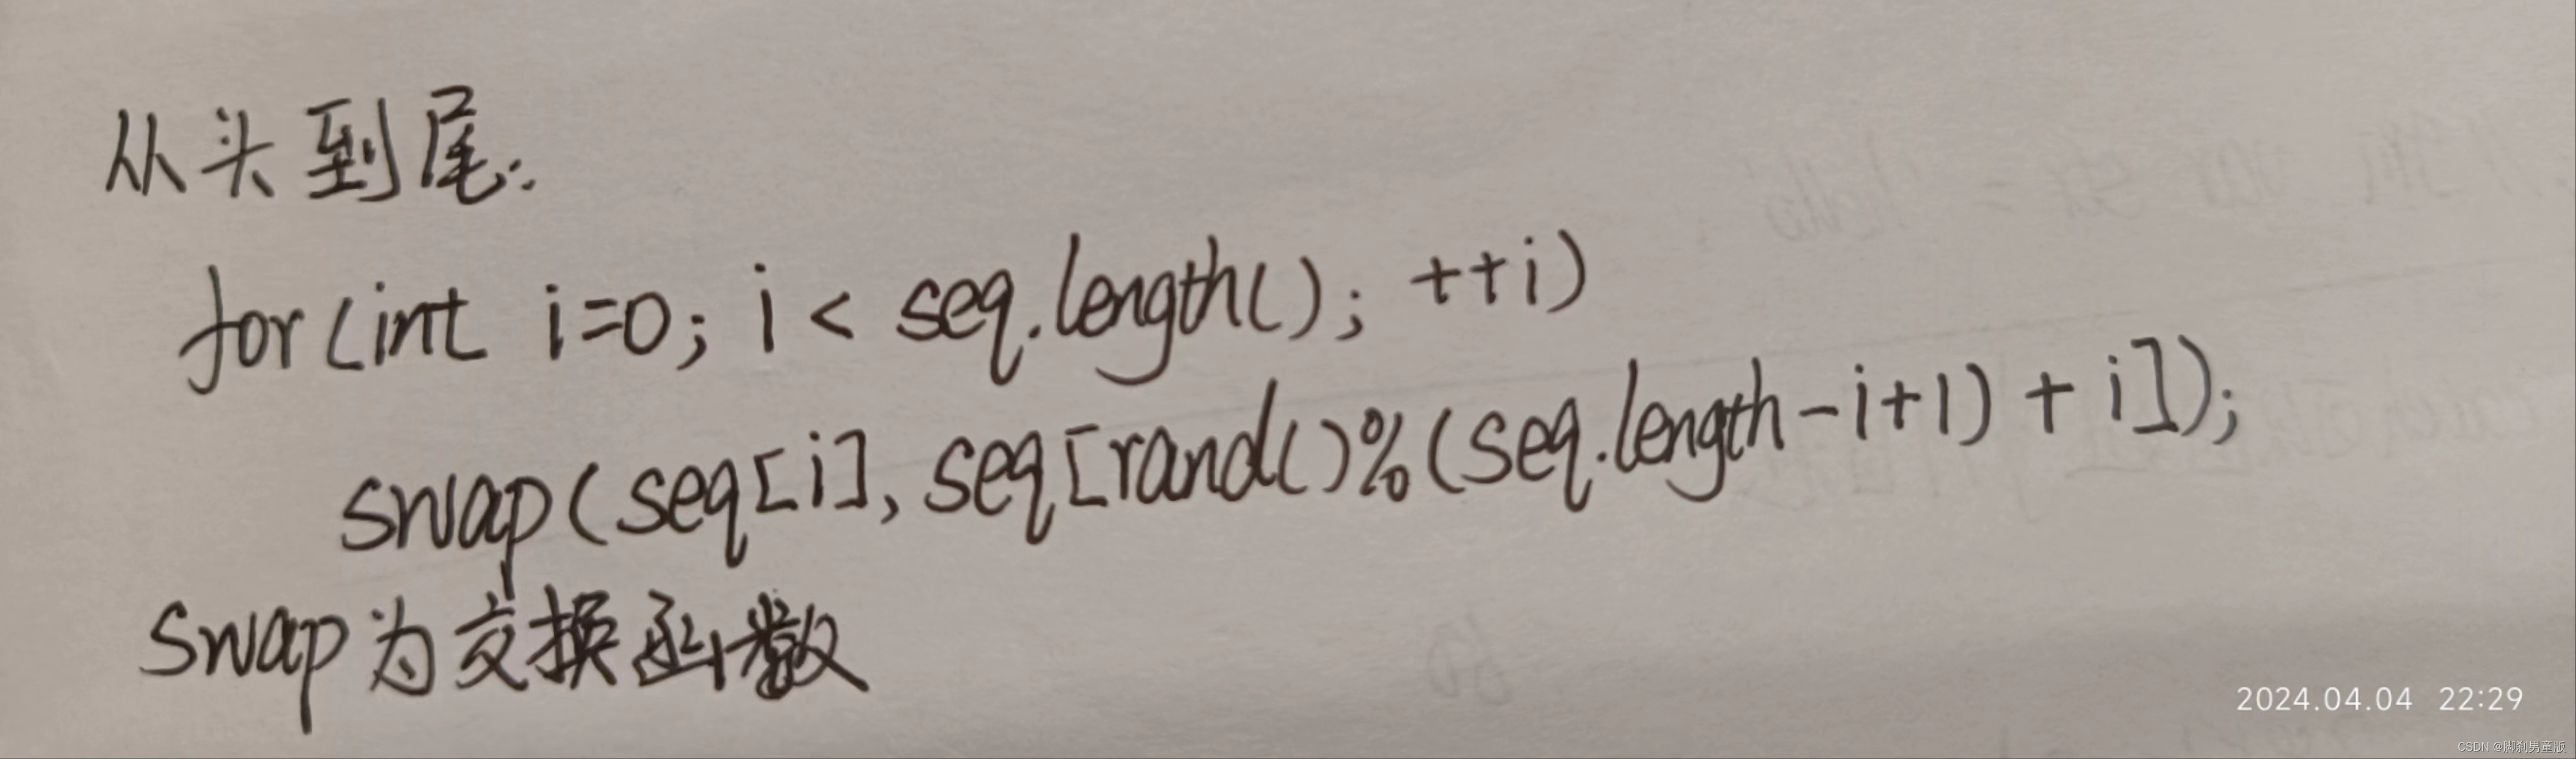 从头到尾:
for(int i=0; i < seq.length(); ++i)
swap(seq[i], seq[rand()%(seq.length-i+1) + i]);
swap为交换函数
2024.04.04 22:29
CSDN @脚刹男童版